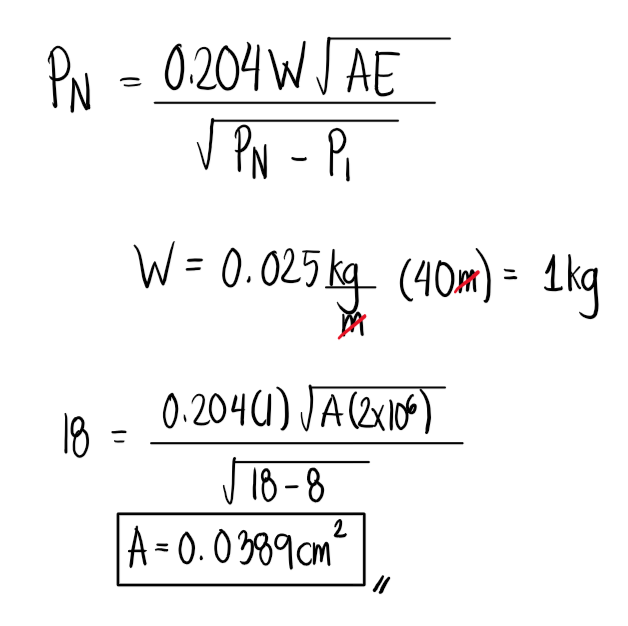 P_N = 0.204W√AE / √P_N - P_1
W = 0.025 kg/m (40m) = 1kg
18 = 0.204(1)√A(2x10⁶) / √18-8
A = 0.0389cm² //